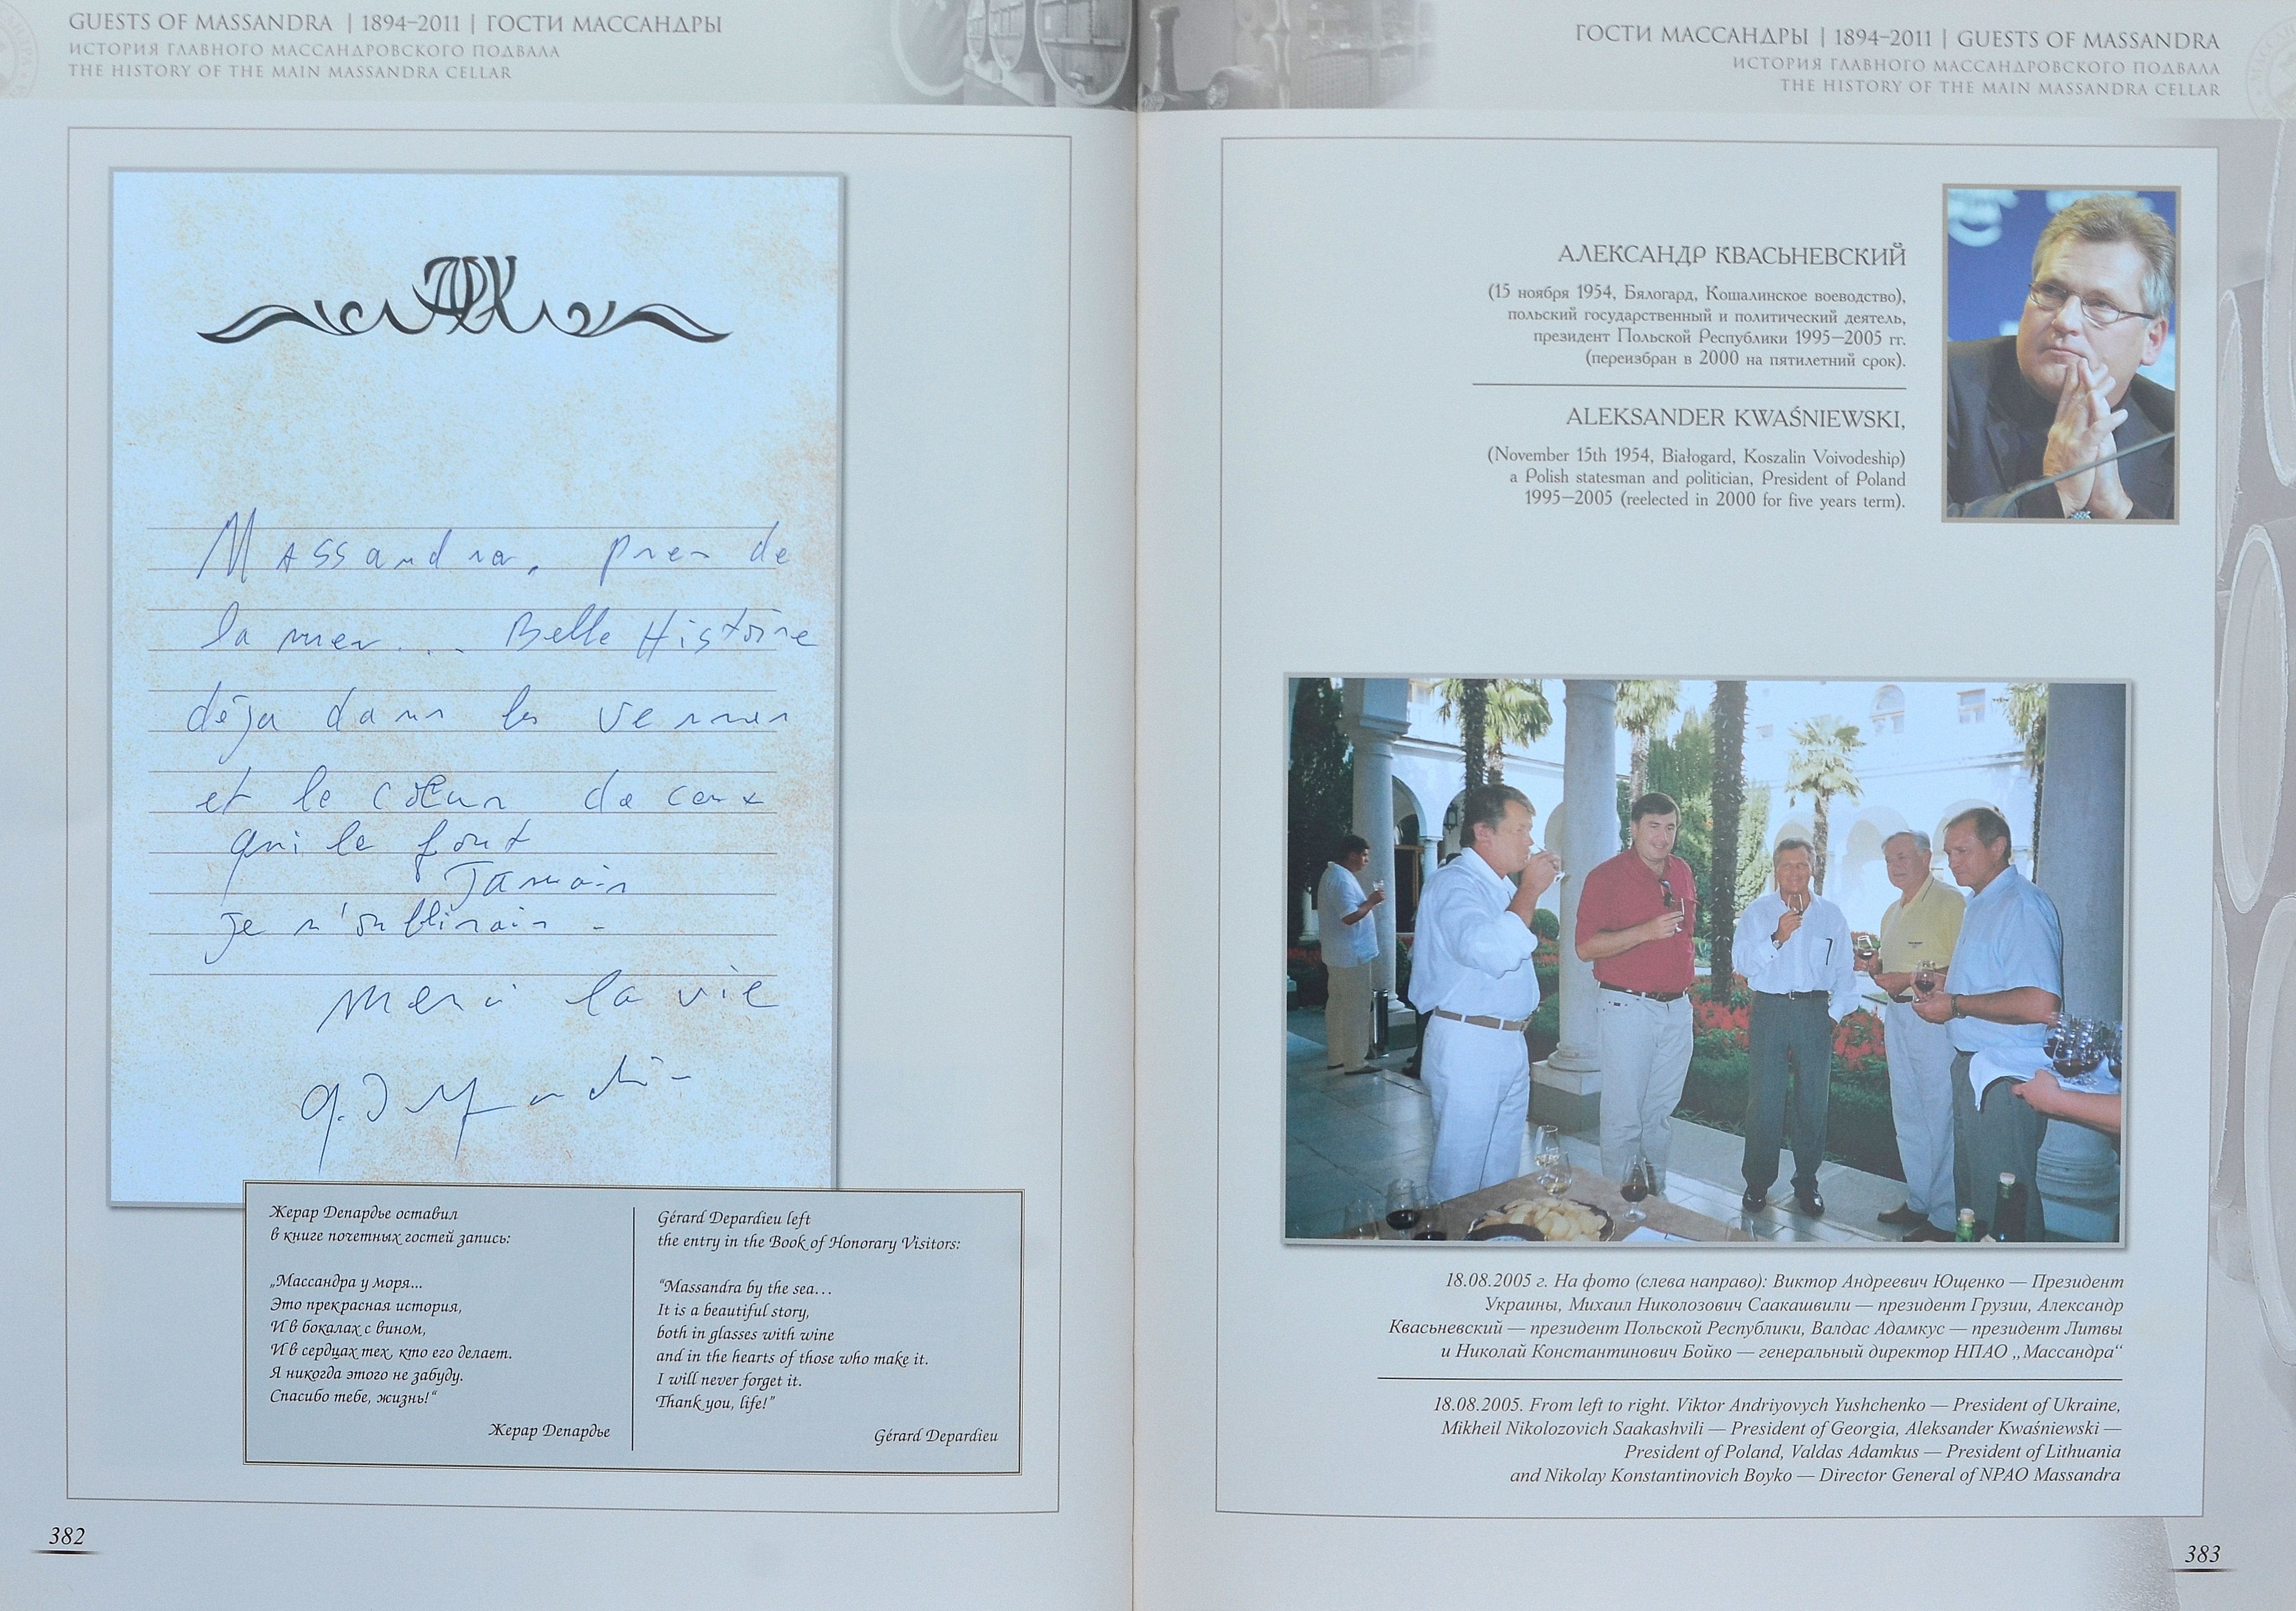 GUESTS OF MASSANDRA | 1894–2011 | ГОСТИ МАССАНДРЫ
ИСТОРИЯ ГЛАВНОГО МАССАНДРОВСКОГО ПОДВАЛА
THE HISTORY OF THE MAIN MASSANDRA CELLAR
Massandra, pres de
la mer... Belle Histoire
déja dans les verres
et le cœur de ceux
qui le font
Jamais
je n'oublirais -
merci la vie
Жерар Депардье оставил
в книге почетных гостей запись:
„Массандра у моря...
Это прекрасная история,
И в бокалах с вином,
И в сердцах тех, кто его делает.
Я никогда этого не забуду.
Спасибо тебе, жизнь!“
Жерар Депардье
Gérard Depardieu left
the entry in the Book of Honorary Visitors:
“Massandra by the sea…
It is a beautiful story,
both in glasses with wine
and in the hearts of those who make it.
I will never forget it.
Thank you, life!”
Gérard Depardieu
382
ГОСТИ МАССАНДРЫ | 1894–2011 | GUESTS OF MASSANDRA
ИСТОРИЯ ГЛАВНОГО МАССАНДРОВСКОГО ПОДВАЛА
THE HISTORY OF THE MAIN MASSANDRA CELLAR
АЛЕКСАНДР КВАСЬНЕВСКИЙ
(15 ноября 1954, Бялогард, Кошалинское воеводство),
польский государственный и политический деятель,
президент Польской Республики 1995–2005 гг.
(переизбран в 2000 на пятилетний срок).
ALEKSANDER KWAŚNIEWSKI,
(November 15th 1954, Białogard, Koszalin Voivodeship)
a Polish statesman and politician, President of Poland
1995–2005 (reelected in 2000 for five years term).
18.08.2005 г. На фото (слева направо): Виктор Андреевич Ющенко — Президент
Украины, Михаил Николозович Саакашвили — президент Грузии, Александр
Квасьневский — президент Польской Республики, Валдас Адамкус — президент Литвы
и Николай Константинович Бойко — генеральный директор НПАО „Массандра“
18.08.2005. From left to right. Viktor Andriyovych Yushchenko — President of Ukraine,
Mikheil Nikolozovich Saakashvili — President of Georgia, Aleksander Kwaśniewski —
President of Poland, Valdas Adamkus — President of Lithuania
and Nikolay Konstantinovich Boyko — Director General of NPAO Massandra
383